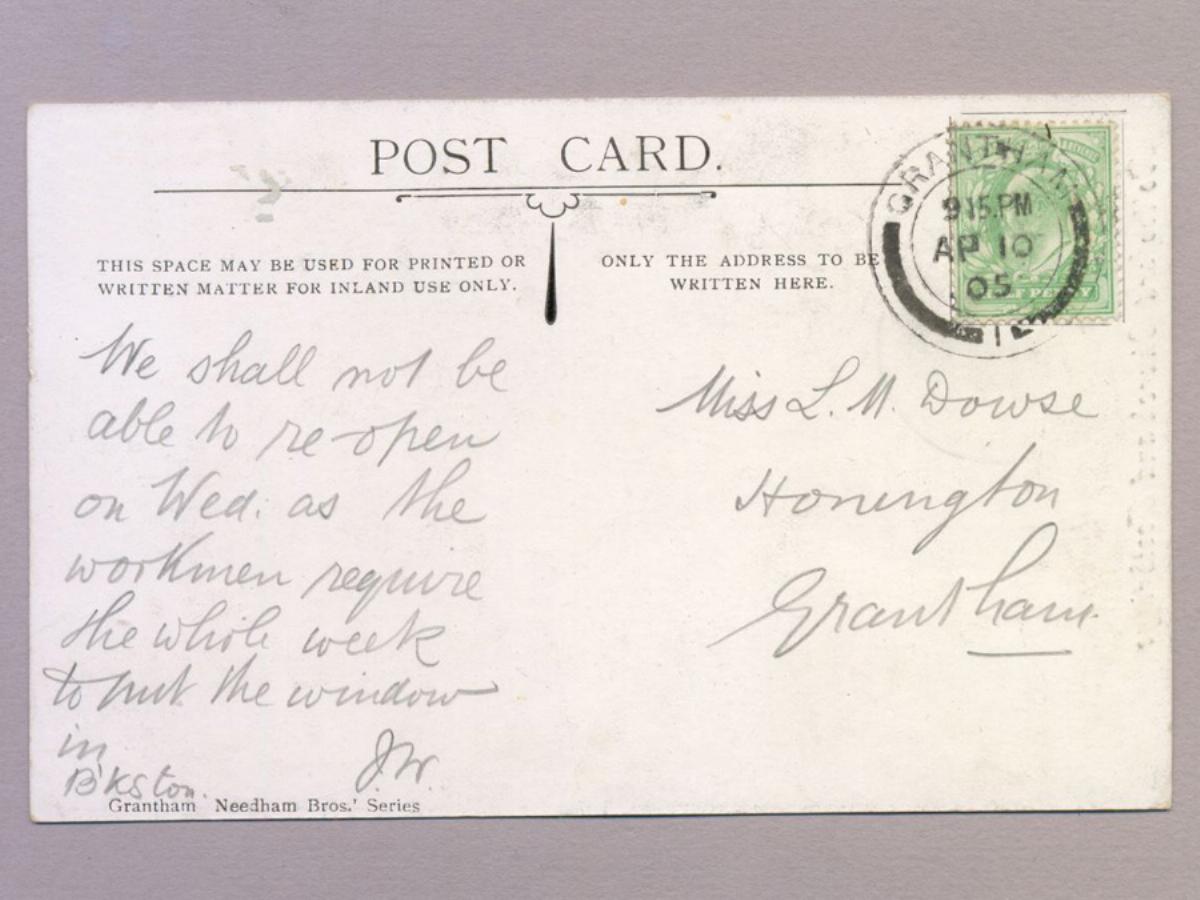 POST CARD.
THIS SPACE MAY BE USED FOR PRINTED OR
WRITTEN MATTER FOR INLAND USE ONLY.
ONLY THE ADDRESS TO BE
WRITTEN HERE.
GRANTHAM
9 15.PM
AP 10
05
HALF PENNY
We shall not be
able to re-open
on Wed: as the
workmen require
the whole week
to put the window
in
J.W.
B'kston.
Miss L. M. Dowse
Honington
Grantham.
Grantham Needham Bros.' Series